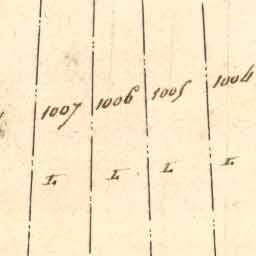 1007 1006 1005 1004
I I I I